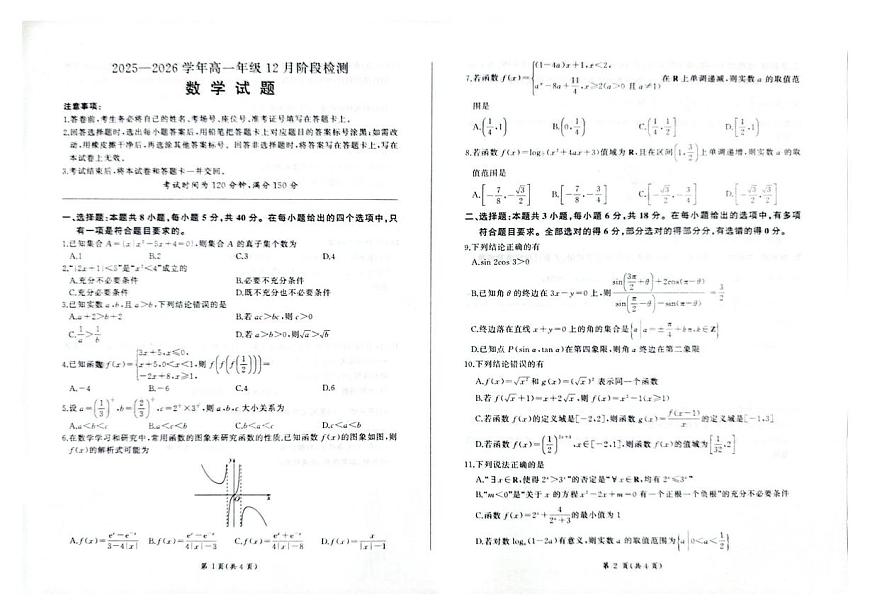 2025—2026 学年高一年级 12 月阶段检测
数 学 试 题
注意事项:
1.答卷前,考生务必将自己的姓名、考场号、座位号、准考证号填写在答题卡上。
2.回答选择题时,选出每小题答案后,用铅笔把答题卡上对应题目的答案标号涂黑;如需改
动,用橡皮擦干净后,再选涂其他答案标号。回答非选择题时,将答案写在答题卡上,写在
本试卷上无效。
3.考试结束后,将本试卷和答题卡一并交回。
考试时间为 120 分钟,满分 150 分
一、选择题:本题共 8 小题,每小题 5 分,共 40 分。在每小题给出的四个选项中,只
有一项是符合题目要求的。
1.已知集合 A={x|x²-5x+4=0},则集合 A 的真子集个数为
A.1 B.2 C.3 D.4
2."|2x+1|<5"是"x²<4"成立的
A.充分不必要条件 B.必要不充分条件
C.充分必要条件 D.既不充分也不必要条件
3.已知实数 a,b,且 a>b,下列结论错误的是
A.a+2>b+2 B.若 ac>bc,则 c>0
C.1/a>1/b D.若 a>b>0,则√a>√b
4.已知函数 f(x)={3x+5,x≤0, x+5,0<x<1, -2x+8,x≥1, 则 f(f(f(1/2)))=
A.-4 B.-6 C.4 D.6
5.设 a=(1/3) ,b=(2/3) ,c=2 ×3 ,则 a,b,c 大小关系为
A.a<b<c B.a<c<b C.b<a<c D.c<a<b
6.在数学学习和研究中,常用函数的图象来研究函数的性质,已知函数 f(x)的图象如图,则
f(x)的解析式可能为
y
O
x
A.f(x)=(eˣ-e⁻ˣ)/(3-4|x|) B.f(x)=(eˣ-e⁻ˣ)/(4|x|-3) C.f(x)=(eˣ+e⁻ˣ)/(4|x|-8) D.f(x)=x/(|x|-1)
第 1 页(共 4 页)
7.若函数 f(x)={(1-4a)x+1,x<2, aˣ-8a+11/4,x≥2(a>0 且 a≠1) 在 R 上单调递减,则实数 a 的取值范
围是
A.(1/4,1) B.(0,1/4) C.(1/4,1/2] D.[1/2,1)
8.若函数 f(x)=log₂(x²+4ax+3)值域为 R,且在区间(1,3/2]上单调递增,则实数 a 的取
值范围是
A.[-7/8,-√3/2] B.[-7/8,-3/4] C.[-√3/2,-3/4] D.[-√3/2,√3/2]
二、选择题:本题共 3 小题,每小题 6 分,共 18 分。在每小题给出的选项中,有多项
符合题目要求。全部选对的得 6 分,部分选对的得部分分,有选错的得 0 分。
9.下列结论正确的有
A.sin 2cos 3>0
B.已知角 θ 的终边在 3x-y=0 上,则 (sin(3π/2+θ)+2cos(π-θ))/(sin(π/2-θ)-sin(π-θ))=3/2
C.终边落在直线 x+y=0 上的角的集合是{α|α=±π/4+kπ,k∈Z}
D.已知点 P(sin α,tan α)在第四象限,则角 α 终边在第二象限
10.下列结论错误的有
A.f(x)=√x² 和 g(x)=(√x)² 表示同一个函数
B.若 f(√x+1)=x+2√x,则 f(x)=x²-1(x≥1)
C.若函数 f(x)的定义域是[-2,2],则函数 g(x)=f(x-1)/x 的定义域是[-1,3]
D.若函数 f(x)=(1/2)²ˣ⁺¹,x∈[-2,1],则函数 f(x)的值域为[1/32,2]
11.下列说法正确的是
A."∃x∈R,使得 2ˣ>3ˣ"的否定是"∀x∈R,均有 2ˣ≤3ˣ"
B."m<0"是"关于 x 的方程 x²-2x+m=0 有一个正根一个负根"的充分不必要条件
C.函数 f(x)=2ˣ+4/(2ˣ+3)的最小值为 1
D.若对数 logₐ(1-2a)有意义,则实数 a 的取值范围为{a|0<a<1/2}
第 2 页(共 4 页)